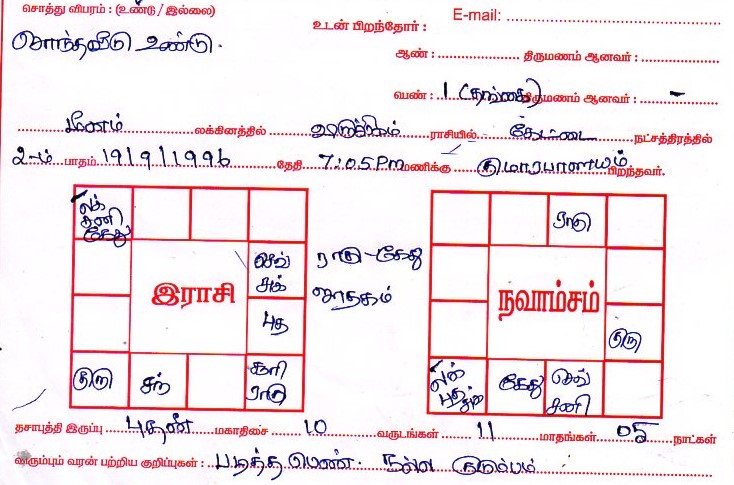 சொத்து விபரம் : (உண்டு / இல்லை)
E-mail: ........................
உடன் பிறந்தோர் :
சொந்தவீடு உண்டு.
ஆண் : .................... திருமணம் ஆனவர் : ....................
பெண் : 1 (தங்கை) திருமணம் ஆனவர் : -
மீனம் லக்கினத்தில் விருச்சிகம் ராசியில் கேட்டை நட்சத்திரத்தில்
2-ம் பாதம் 19/9/1996 தேதி 7:05 PM மணிக்கு குமாரபாளையம் பிறந்தவர்.
லக் சனி கேது
ராகு
செவ் சுக்
ராகு - கேது
இராசி
ஜாதகம்
நவாம்சம்
புத
குரு
குரு
சந்
சூரி ராகு
கேது
செவ் சனி
தசாபுத்தி இருப்பு புதன் மகாதிசை 10 வருடங்கள் 11 மாதங்கள் 05 நாட்கள்
விரும்பும் வரன் பற்றிய குறிப்புகள் : படித்த பெண். நல்ல குடும்பம்